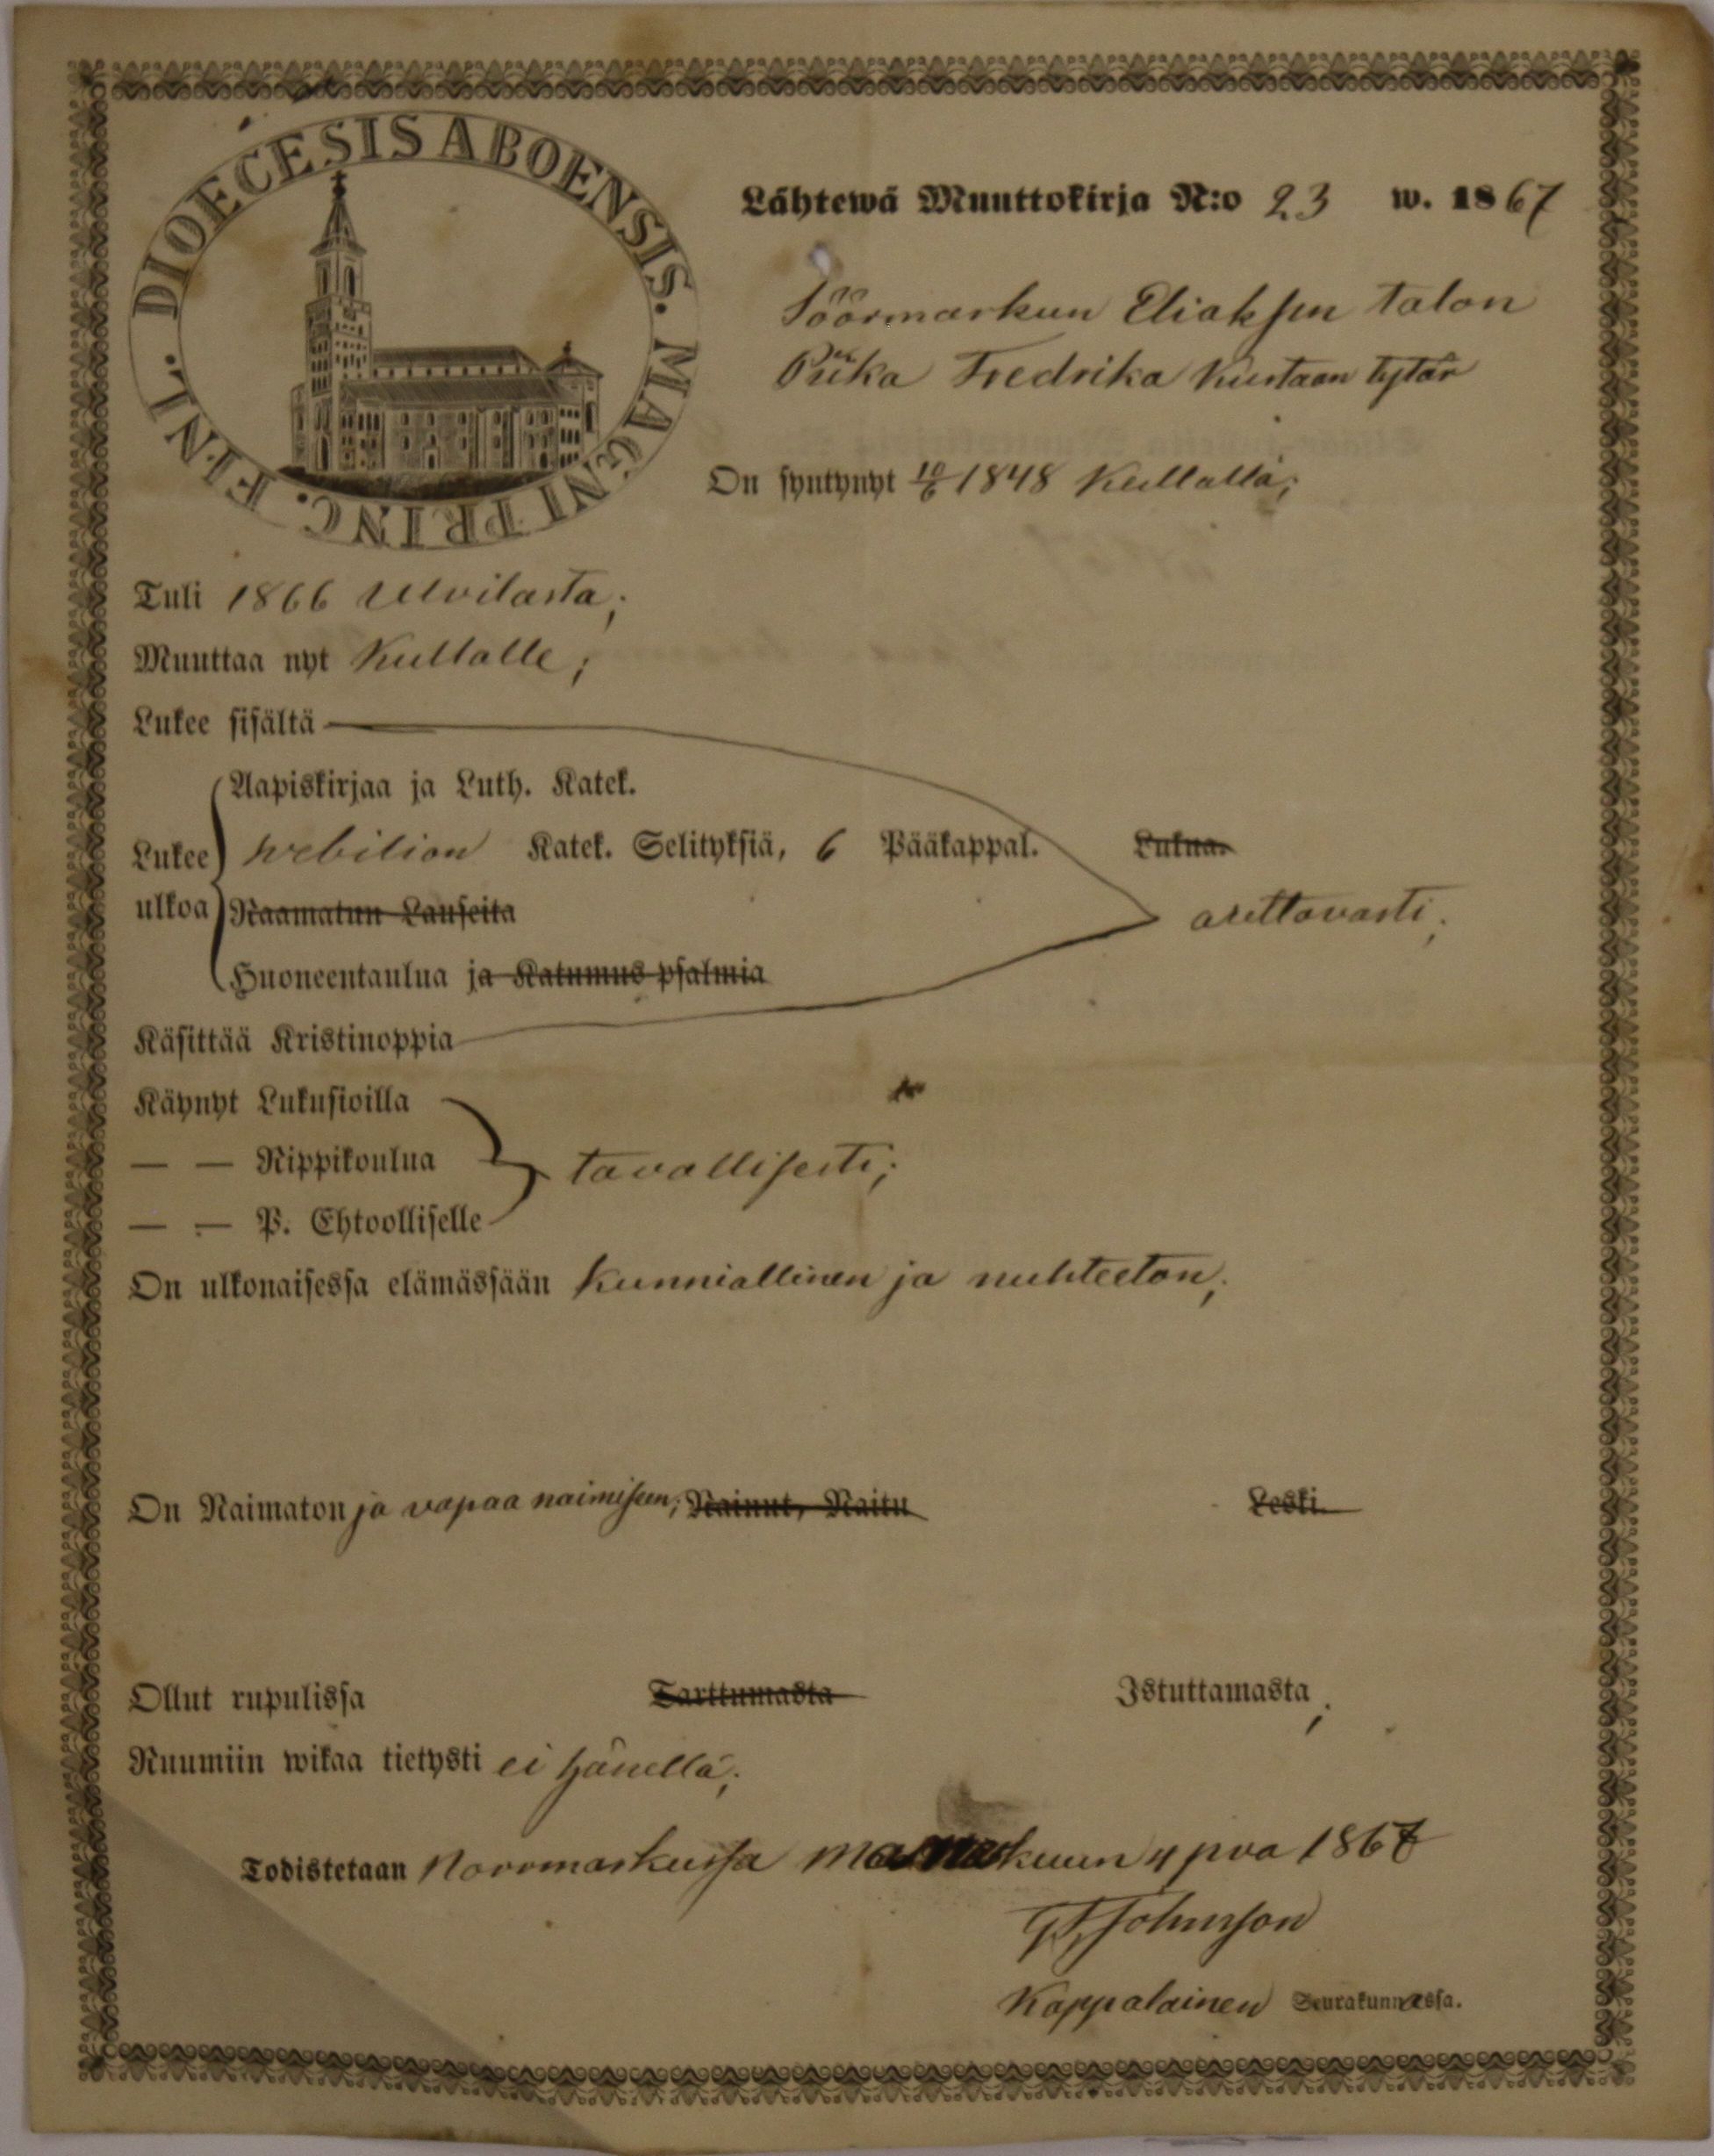 DIOECESIS ABOENSIS. MAGNI PRINC. FINL.
Lähtewä Muuttokirja N:o 23 w. 1867
Söörmarkun Eliaksen talon
Piika Fredrika Kustaan tytär
On syntynyt 10/6 1848 Kullalla;
Tuli 1866 Ulvilasta;
Muuttaa nyt Kullalle;
Lukee sisältä
Aapiskirjaa ja Luth. Katek.
Lukee Katek. Selityksiä, 6 Pääkappal. Lukua.
ulkoa Raamatun Lauseita
arettavasti;
Huoneentaulua ja Katumus psalmia
Käsittää Kristinoppia
Käynyt Lukusioilla
— — Rippikoulua tavallisesti;
— — P. Ehtoolliselle
On ulkonaisessa elämässään kunniallinen ja nuhteeton;
On Naimaton ja vapaa naimiseen; Nainut, Naitu Leski.
Ollut rupulissa Tarttumasta Istuttamasta;
Ruumiin wikaa tietysti ei hänellä;
Todistetaan Noormarkussa marraskuun 4 pva 1867
Johnsson
Kappalainen Seurakunnassa.